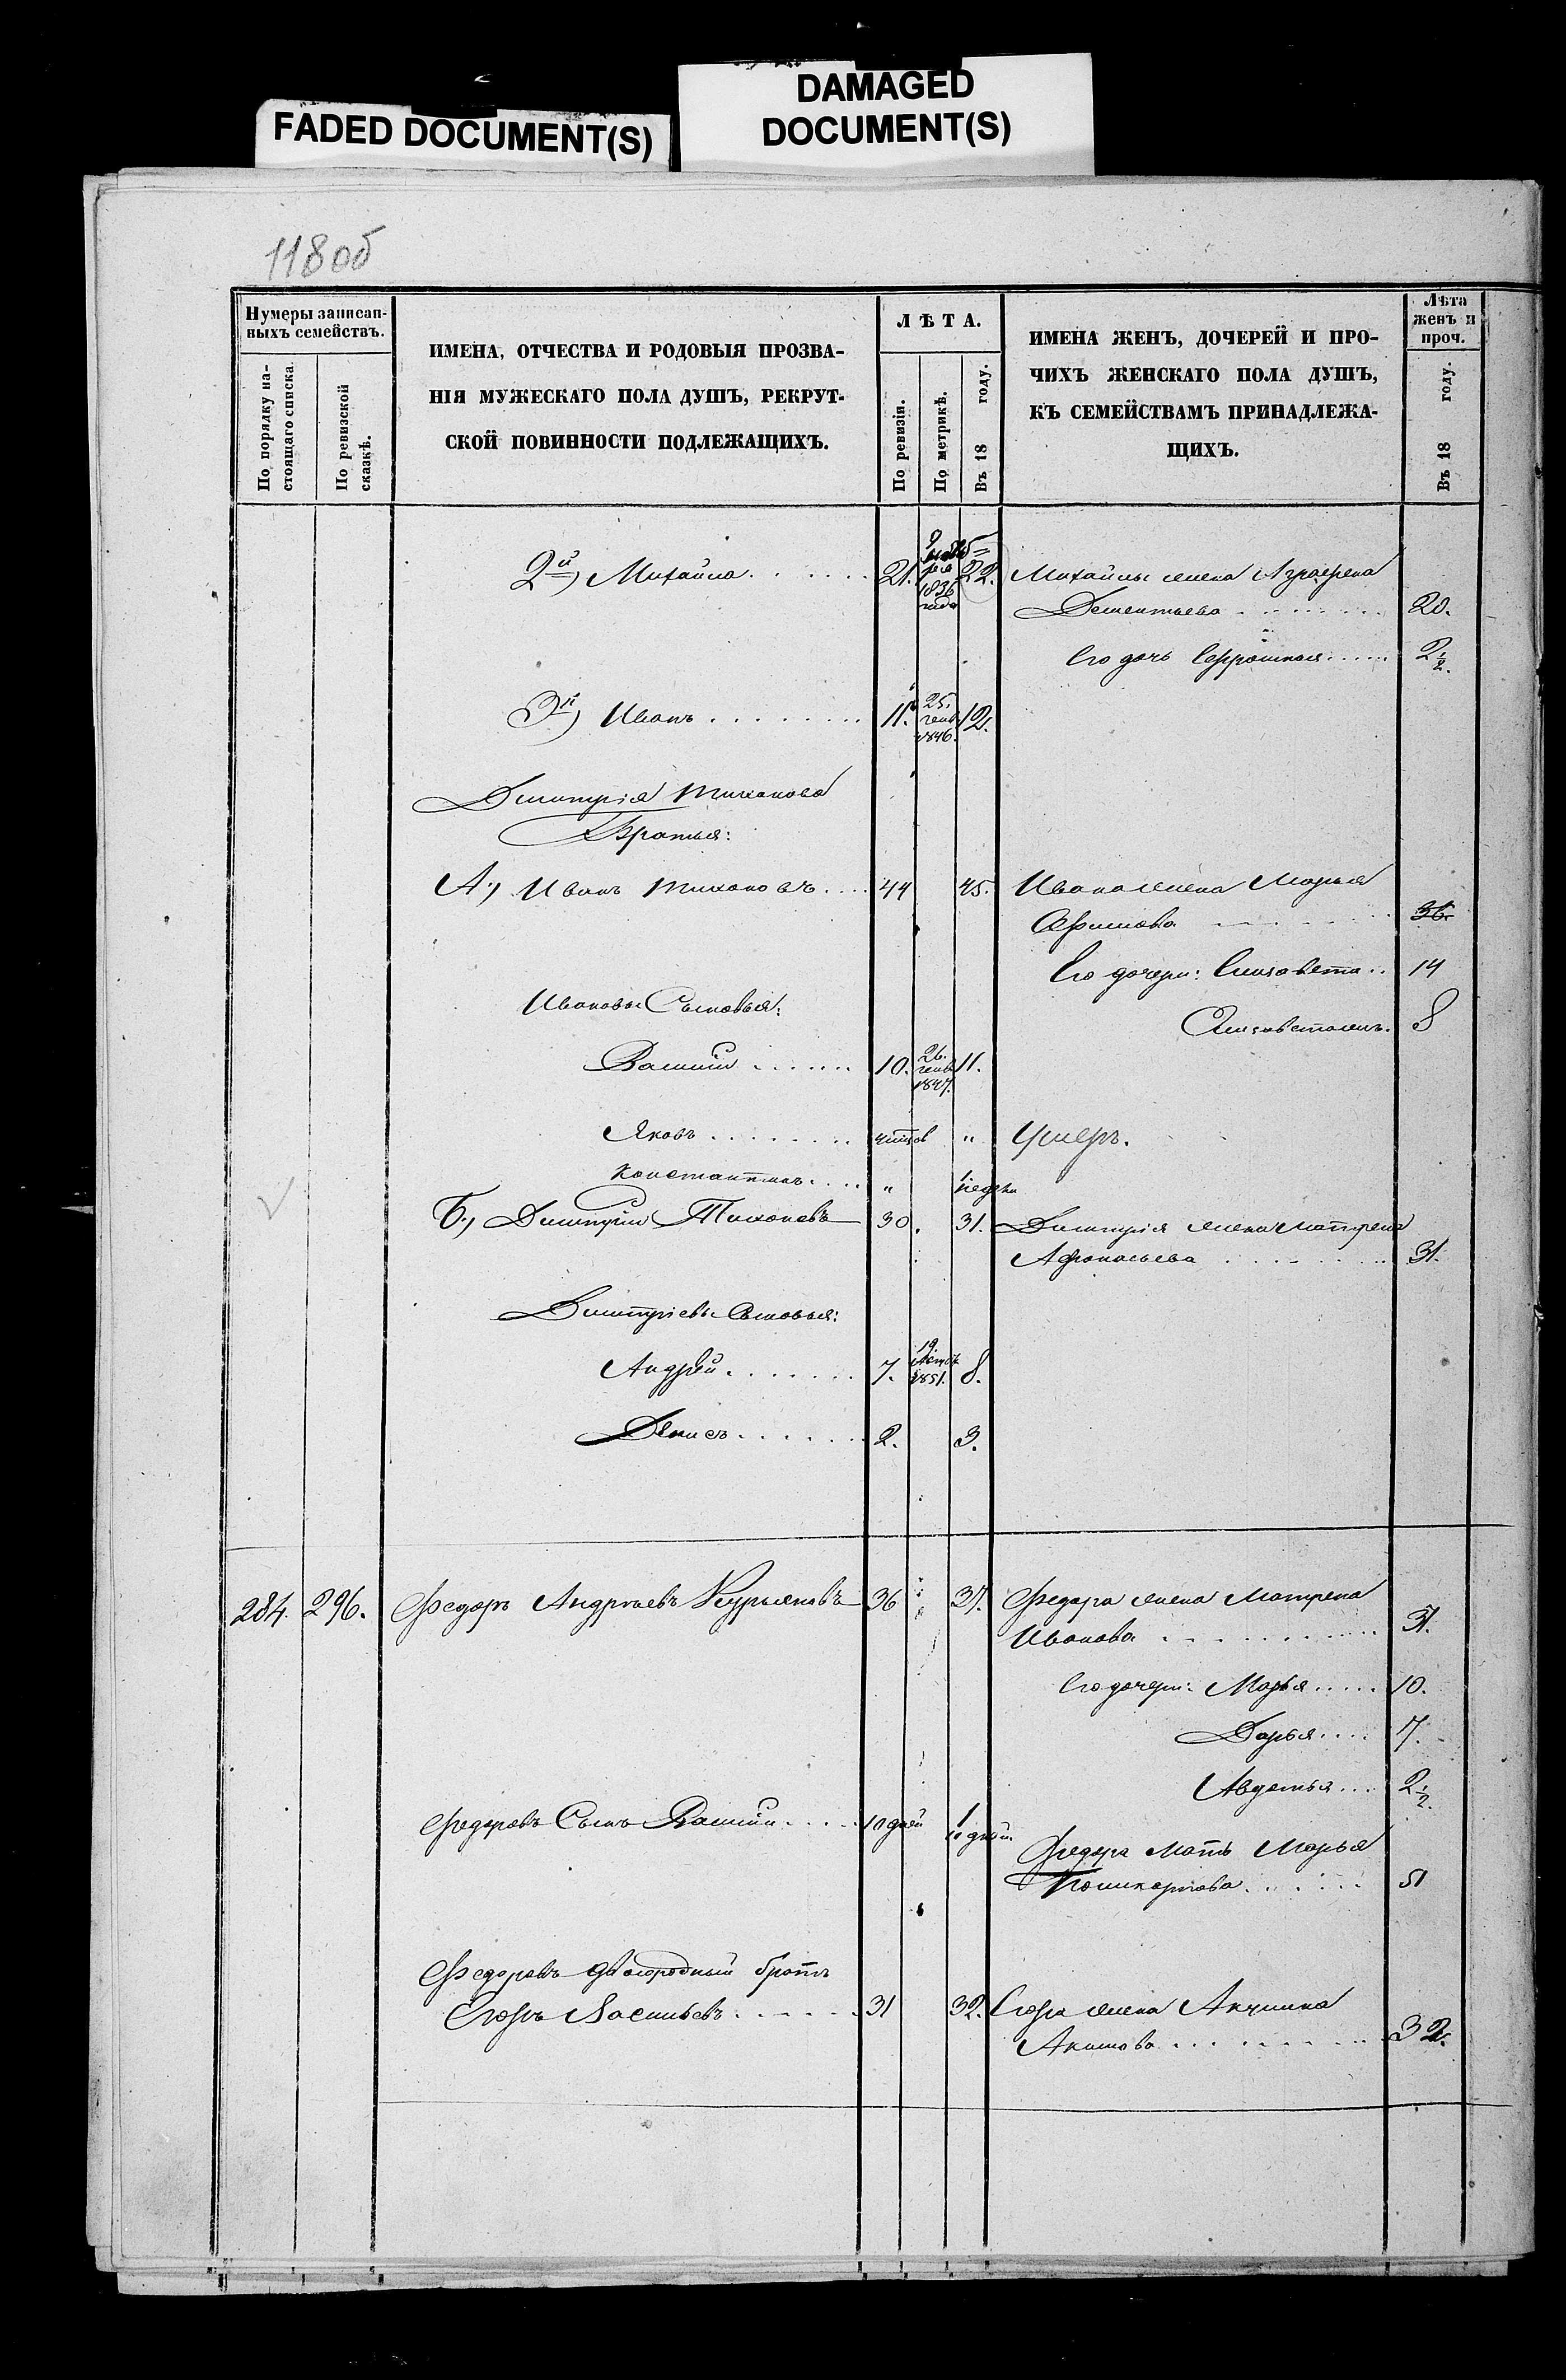 FADED DOCUMENT(S)
DAMAGED
DOCUMENT(S)
118 об
Нумеры записан-
ныхъ семействъ.
По порядку на-
стоящаго списка.
По ревизской
сказкѣ.
ИМЕНА, ОТЧЕСТВА И РОДОВЫЯ ПРОЗВА-
НІЯ МУЖЕСКАГО ПОЛА ДУШЪ, РЕКРУТ-
СКОЙ ПОВИННОСТИ ПОДЛЕЖАЩИХЪ.
ЛѢТА.
По ревизіи.
По метрикѣ.
Въ 18 году.
ИМЕНА ЖЕНЪ, ДОЧЕРЕЙ И ПРО-
ЧИХЪ ЖЕНСКАГО ПОЛА ДУШЪ,
КЪ СЕМЕЙСТВАМЪ ПРИНАДЛЕЖА-
ЩИХЪ.
Лѣта
женъ и
проч.
Въ 18 году.
2й) Михайла 21. 9 ноября 1836 года 22. Михайлы жена Аграфена
Дементьева 20.
Его дочь Ефросинья 2 1/2.
3й) Иванъ 11. 25. генв. 1846. 12.
Димитрія Тихонова
Братья:
А.) Иванъ Тихоновъ 44 45. Ивана жена Марья
Ефимова 36.
Его дочери: Елизавета 14
Ивановы Сыновья:
8
Василій 10. 26. генв. 1847. 11.
Яковъ " Умеръ.
Константинъ " недѣли
Б.) Димитрій Тихоновъ 30. 31. Димитрія жена Матрена
Афонасьева 31.
Димитріевы Сыновья:
Андрей 7. 19 1851. 8.
Денисъ 2. 3.
284. 296. Федоръ Андреевъ Курьяновъ 36 37. Федора жена Матрена
Иванова 37.
Его дочери: Марья 10.
Дарья 7.
Авдотья 2 1/2.
Федоровъ Сынъ Василій 10 дней 1 10 дней.
Федора мать Марья
Поликарпова 51
Федоровъ двоюродный братъ
Егоръ Васильевъ 31 32. Егора жена Акулина
Акимова 32.